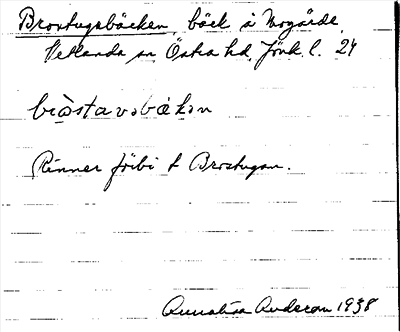 Brostugubäcken, bäck å Mogärde,
Vetlanda sn, Östra hd, Jönk. l. 24
Rinner förbi t Brostugan.
Annalisa Anderson 1938